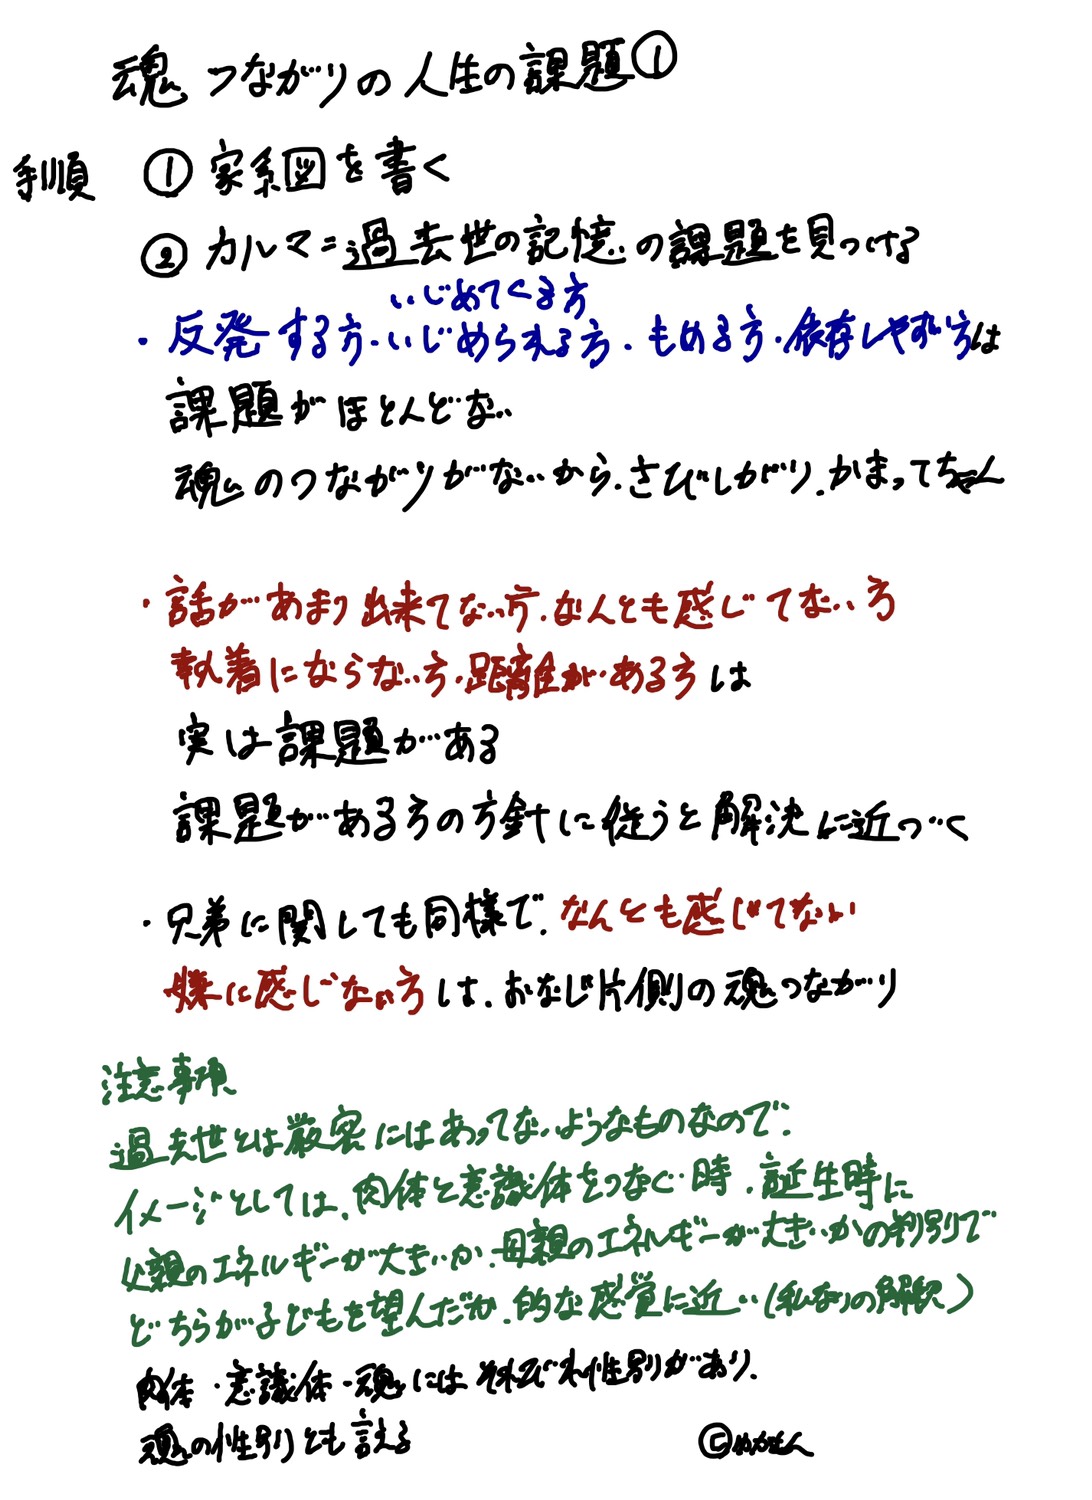 魂つながりの人生の課題①
手順 ①家系図を書く
②カルマ=過去世の記憶の課題を見つける
いじめてくる方
・反発する方・いじめられる方・もめる方・依存しやすい方は
課題がほとんどない
魂のつながりがないから、さびしがり、かまってちゃん
・話があまり出来てない方、なんとも感じてない方
執着にならない方・距離がある方は
実は課題がある
課題がある方の方針に従うと解決に近づく
・兄弟に関しても同様で、なんとも感じてない
嫌に感じない方は、おなじ片側の魂つながり
注意事項
過去世とは厳密にはあってないようなものなので、
イメージとしては、肉体と意識体をつなぐ時、誕生時に
父親のエネルギーが大きいか、母親のエネルギーが大きいかの判別で
どちらが子どもを望んだか、的な感覚に近い(私なりの解釈)
肉体・意識体・魂にはそれぞれ性別があり、
魂の性別とも言える
©めかもん